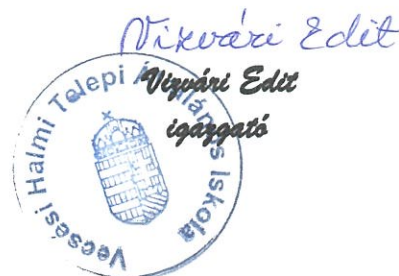 Vizvári Edit
Vizvári Edit
igazgató
Vecsési Halmi Telepi Általános Iskola